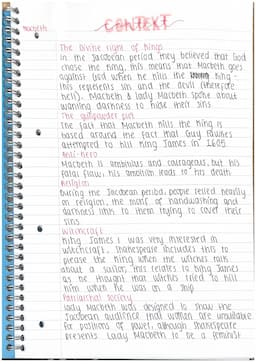 Macbeth
CONTEXT
The Divine right of Kings
In the Jacobean period they believed that God
chose the king, this means that Macbeth goes
against God when he kills the king -
this represents sin and the devil (therefore
hell). Macbeth & Lady Macbeth spoke about
wanting darkness to hide their sins
The gunpowder plot
The fact that Macbeth kills the king is
based around the fact that Guy Fawkes
attempted to kill King James in 1605
Anti-hero
Macbeth is ambitious and courageous, but his
fatal flaw, his ambition leads to his death
Religion
During the Jacobean period, people relied heavily
on religion, the motif of handwashing and
darkness links to them trying to cover their
sins
Witchcraft
King James I was very interested in
witchcraft. Shakespeare includes this to
please the king when the witches talk
about a sailor, this relates to King James
as he thought that witches tried to kill
him when he was on a ship
Patriarchal society
Lady Macbeth was designed to show the
Jacobean audience that women are unsuitable
for positions of power, although Shakespeare
presents Lady Macbeth to be a feminist